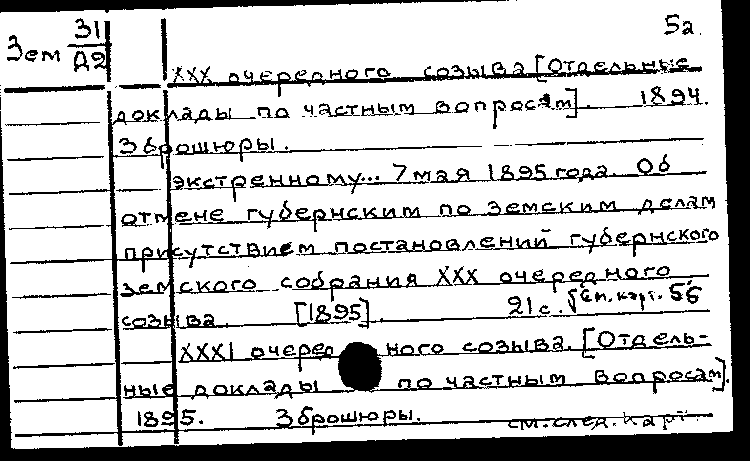 Зем 31/Д2 5а.
XXX очередного созыва [Отдельные
доклады по частным вопросам]. 1894.
3 брошюры.
экстренному... 7 мая 1895 года. Об
отмене губернским по земским делам
присутствием постановлений губернского
земского собрания XXX очередного
созыва. [1895]. 21 с. См. карт. 5б
XXXI очередного созыва. [Отдель-
ные доклады по частным вопросам].
1895. 3 брошюры. см. след. карт.